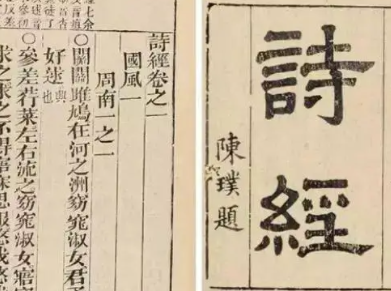 詩經
陳璞題
詩經卷之一
國風一
周南一之一
○關關雎鳩在河之洲窈窕淑女君子
好逑也興
○參差荇菜左右流之窈窕淑女寤寐
求之求之不得寤寐思服悠哉悠哉